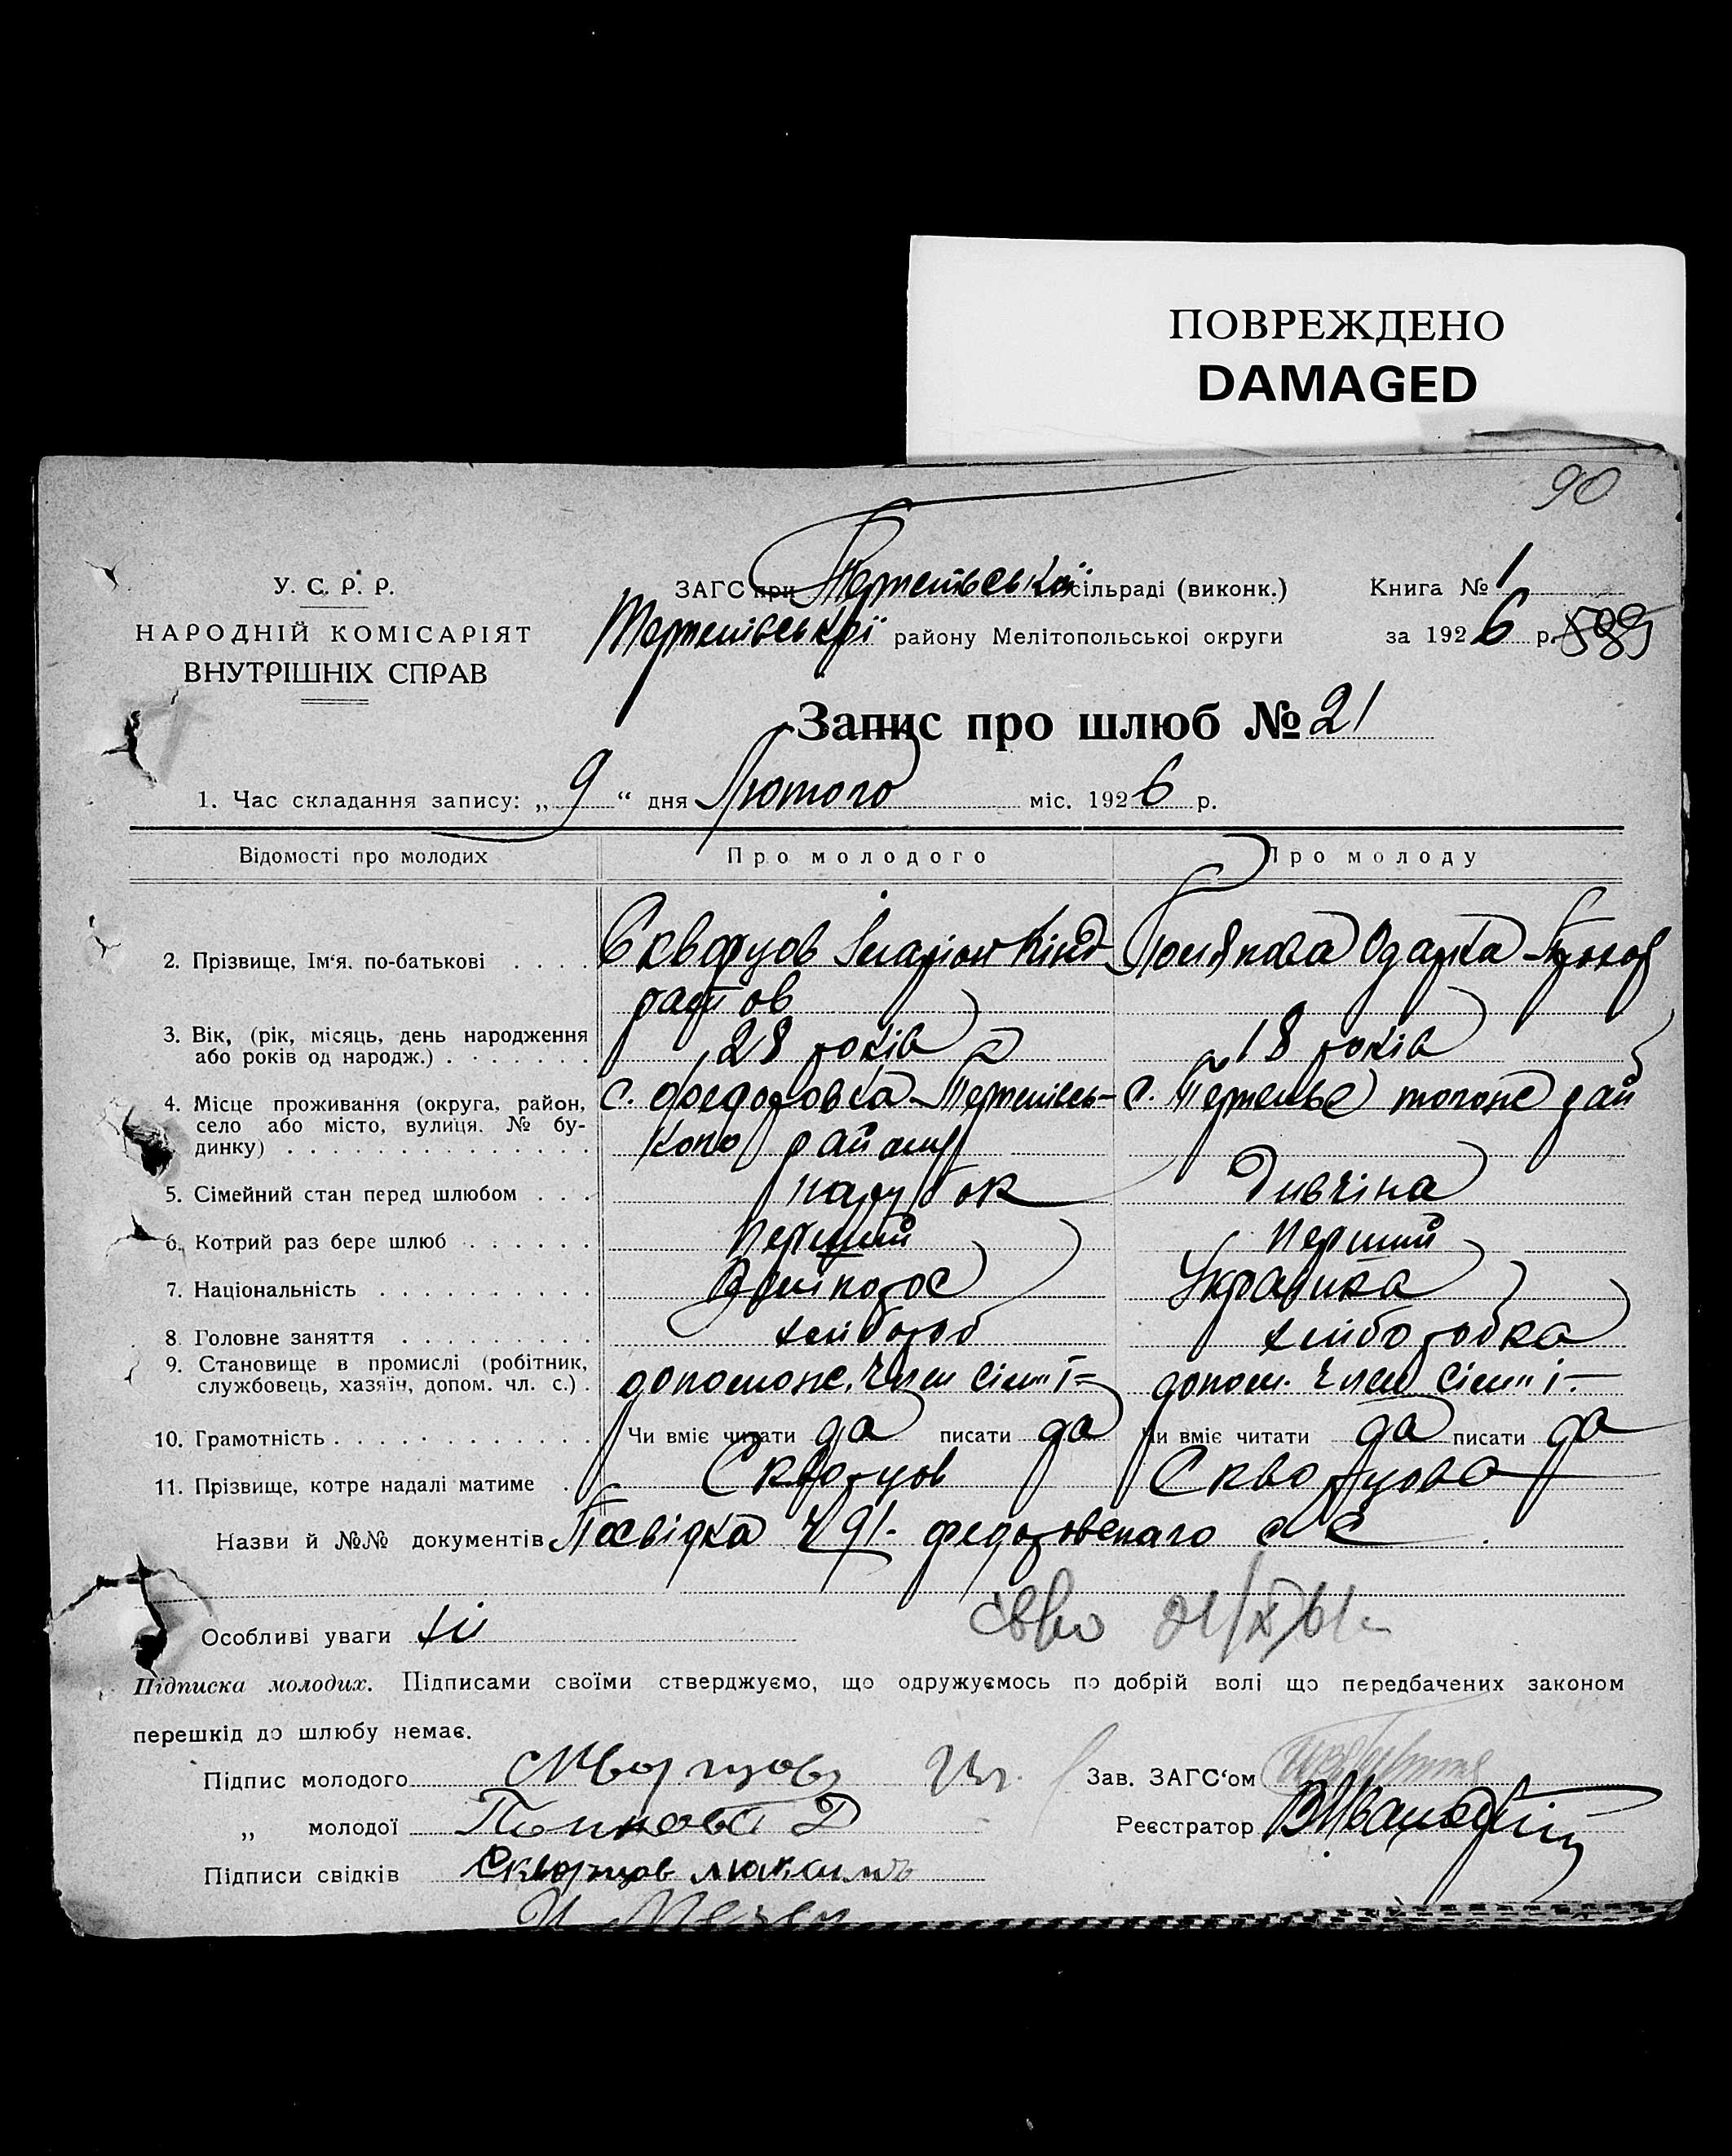 ПОВРЕЖДЕНО
DAMAGED
90
У. С. Р. Р.
НАРОДНІЙ КОМІСАРІЯТ
ВНУТРІШНІХ СПРАВ
ЗАГС при Терпенівської сільраді (виконк.)
Терпенівської району Мелітопольської округи
Книга № 1
за 1926 р.
Запис про шлюб № 21
1. Час складання запису: „ 9 “ дня Лютого міс. 1926 р.
Відомості про молодих Про молодого Про молоду
2. Прізвище, Ім‘я, по-батькові . . . . Скворцов Іларіон Кінд- Полякова Одарка
ратов
3. Вік, (рік, місяць, день народження
або років од народж.) . . . . . . . 28 років 18 років
4. Місце проживання (округа, район, с. Федоровка Терпенівсь- с. Терпеньє того же рай
село або місто, вулиця. № бу- кого району
динку) . . . . . . . . . . . . . .
5. Сімейний стан перед шлюбом . . . парубок Дивчіна
6. Котрий раз бере шлюб . . . . . . перший перший
7. Національність . . . . . . . . . . Українка
8. Головне заняття . . . . . . . . . хлібороб хліборобка
9. Становище в промислі (робітник,
службовець, хазяїн, допом. чл. с.) . допомож. член сімʼʼї допом. член сімʼʼї
10. Грамотність . . . . . . . . . . . . Чи вміє читати да писати да Чи вміє читати да писати да
11. Прізвище, котре надалі матиме . Скворцов Скворцова
Назви й №№ документів Посвідка Ч 91 федоровскаго с С
Особливі уваги
Підписка молодих. Підписами своїми стверджуємо, що одружуємось по добрій волі що передбачених законом
перешкід до шлюбу немає.
Підпис молодого Скворцов
Зав. ЗАГС‘ом
„ молодої Д
Реєстратор
Підписи свідків Скворцов